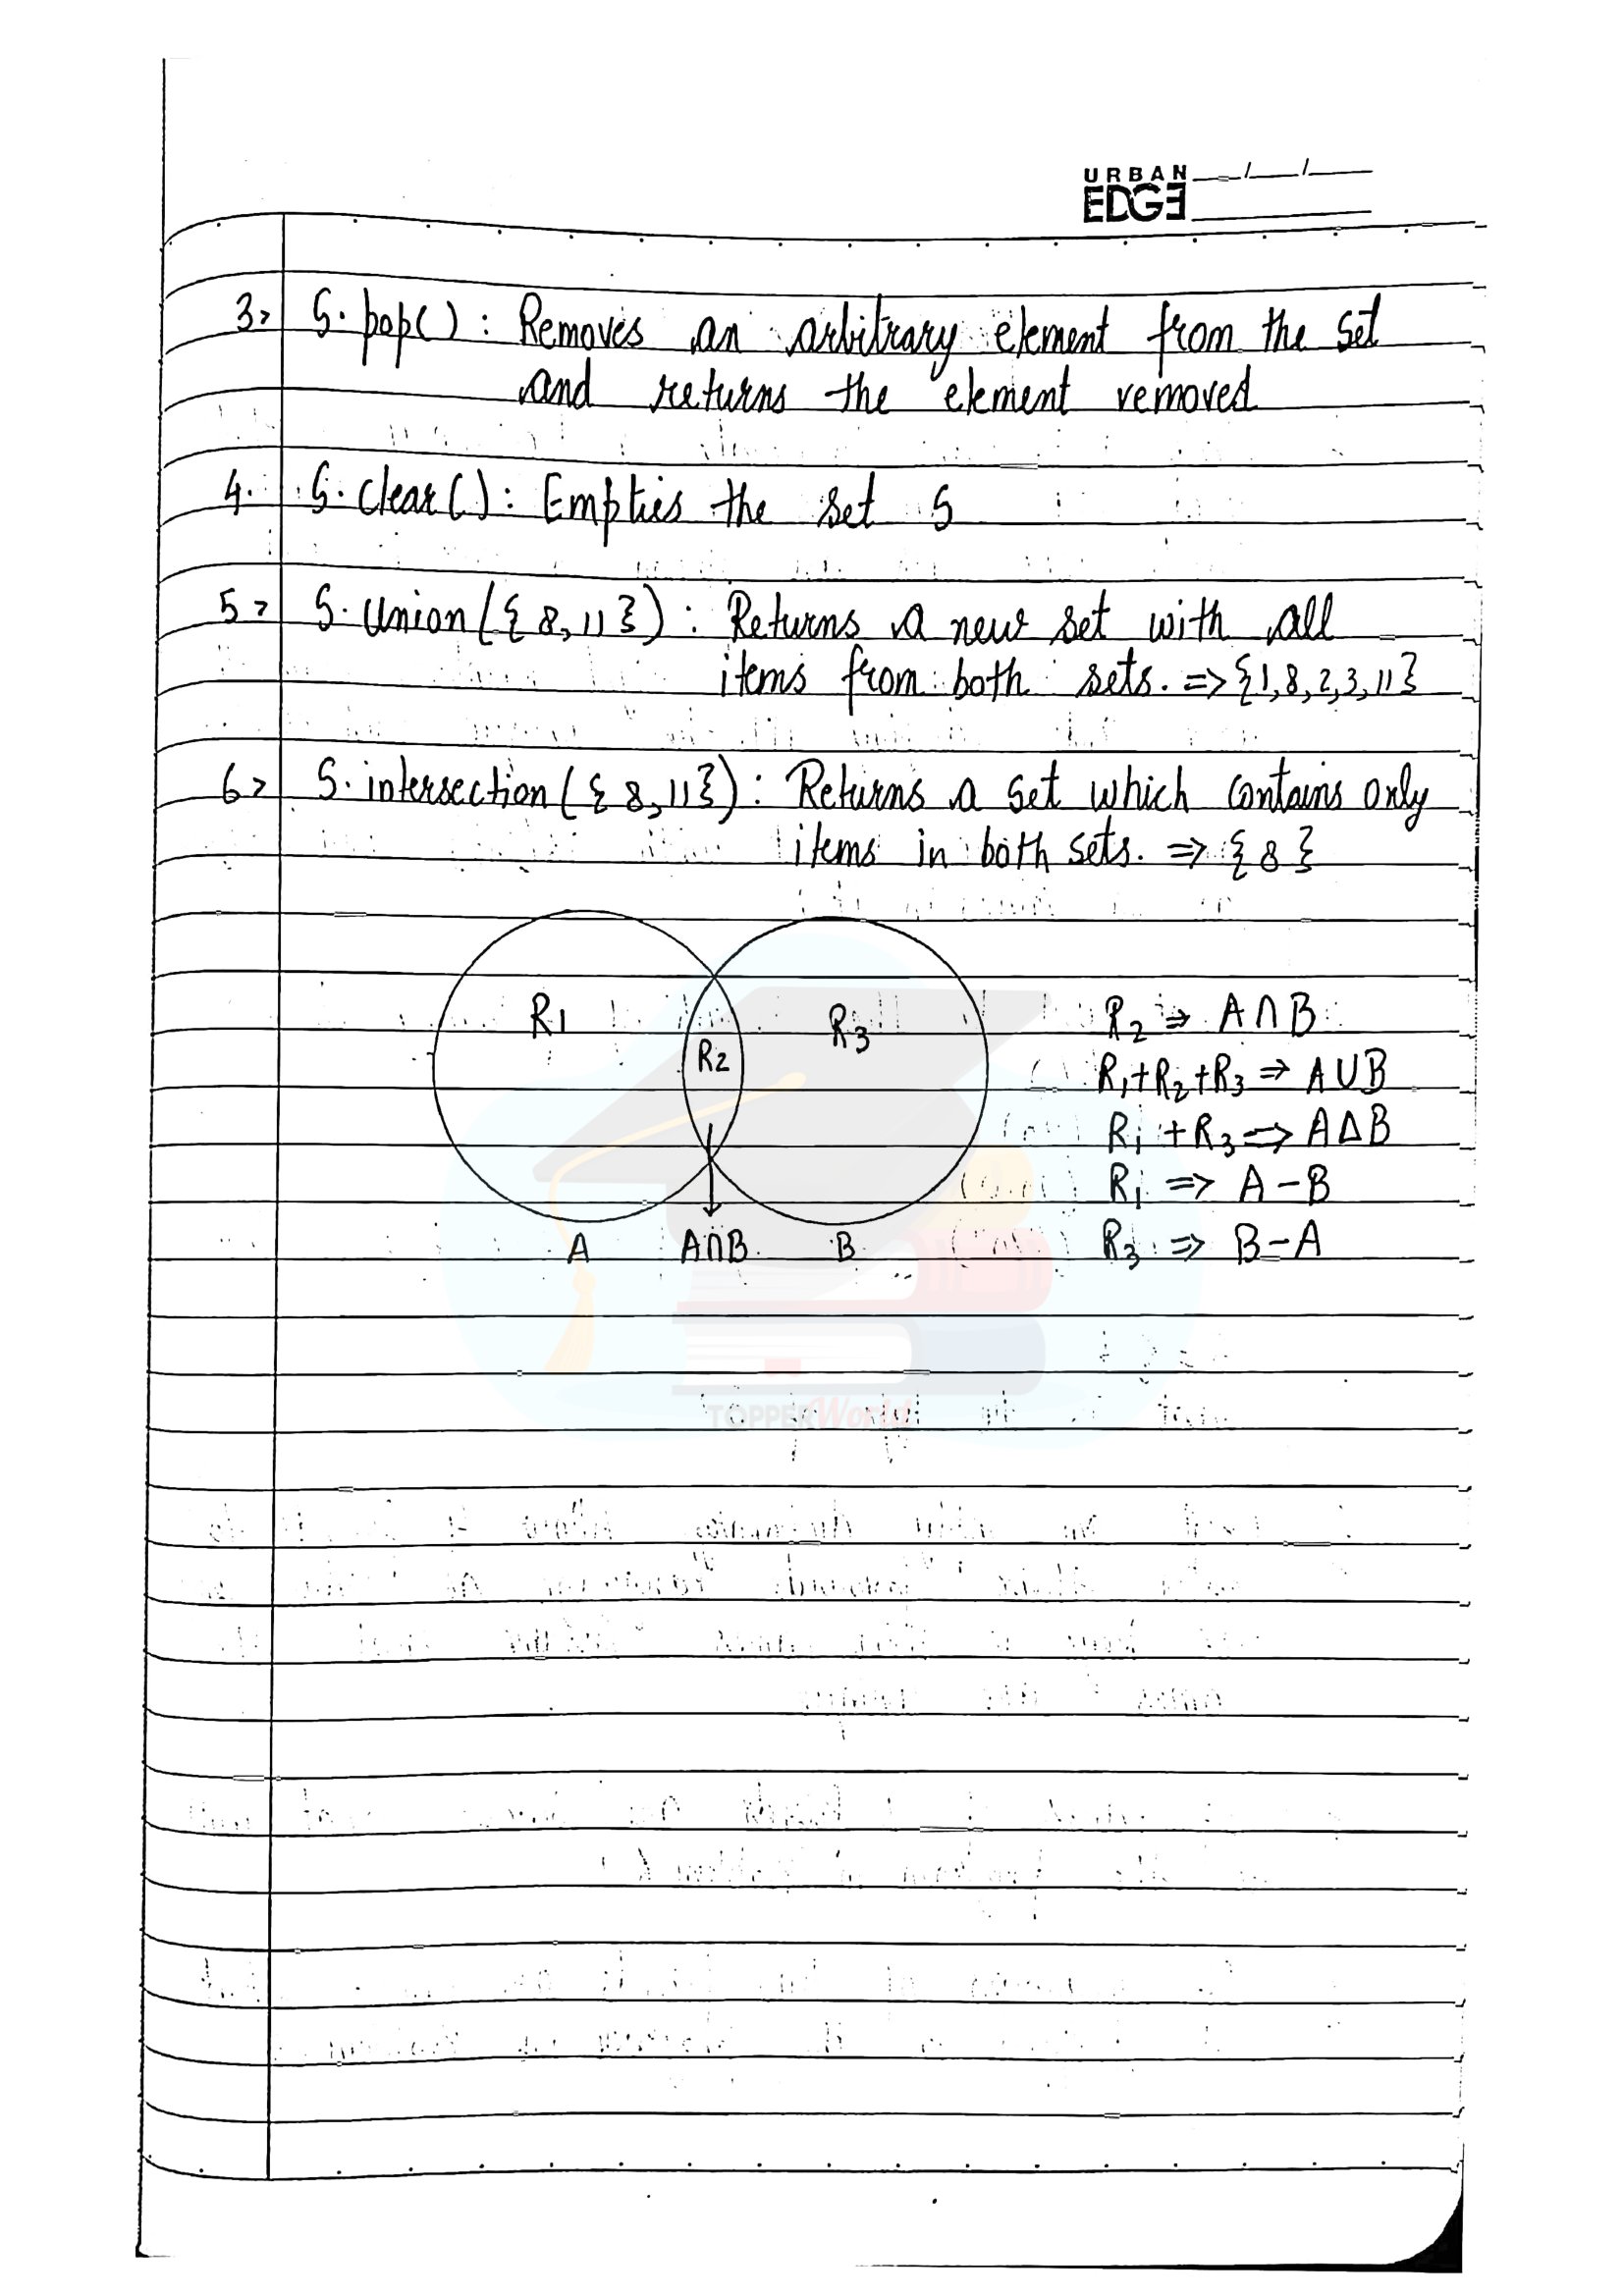 URBAN
EDGE
3> S. pop() : Removes an arbitrary element from the set
and returns the element removed
4. S. clear() : Empties the set S
5> S. Union ({8, 11}) : Returns a new set with all
items from both sets. => {1, 8, 2, 3, 11}
6> S. intersection ({8, 11}) : Returns a set which contains only
items in both sets. => {8}
R1
R2
R3
A
A∩B
B
R2 => A∩B
R1+R2+R3 => A∪B
R1+R3 => AΔB
R1 => A-B
R3 => B-A
TOPPERWorld